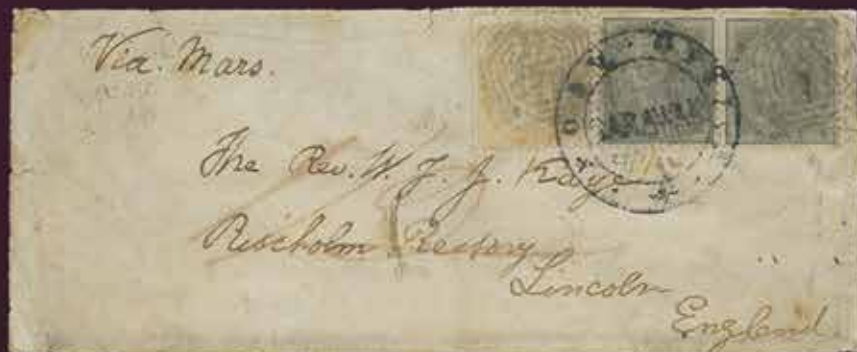 Via. Mars.
The Rev. W. J. J. Kaye
Riseholm Rectory
Lincoln
England.
SARAWAK